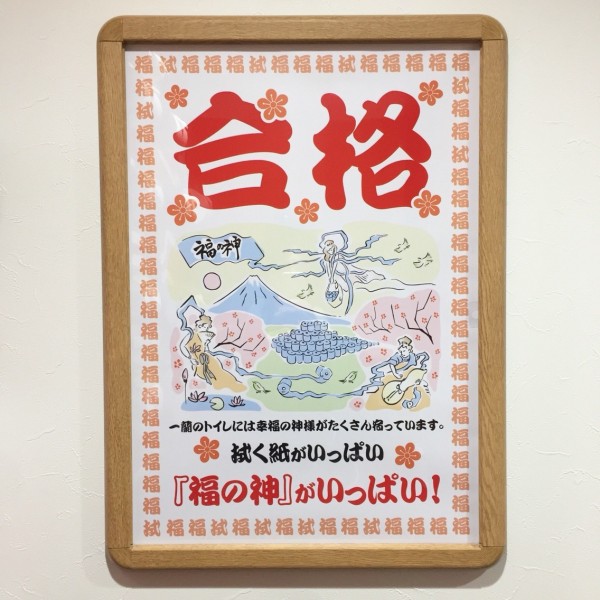 福拭福福福拭福福福拭福福福拭福福福拭福
合格
福の神
一蘭のトイレには幸福の神様がたくさん宿っています。
拭く紙がいっぱい
『福の神』がいっぱい!
拭福福福拭福福福拭福福福拭福福福拭福福